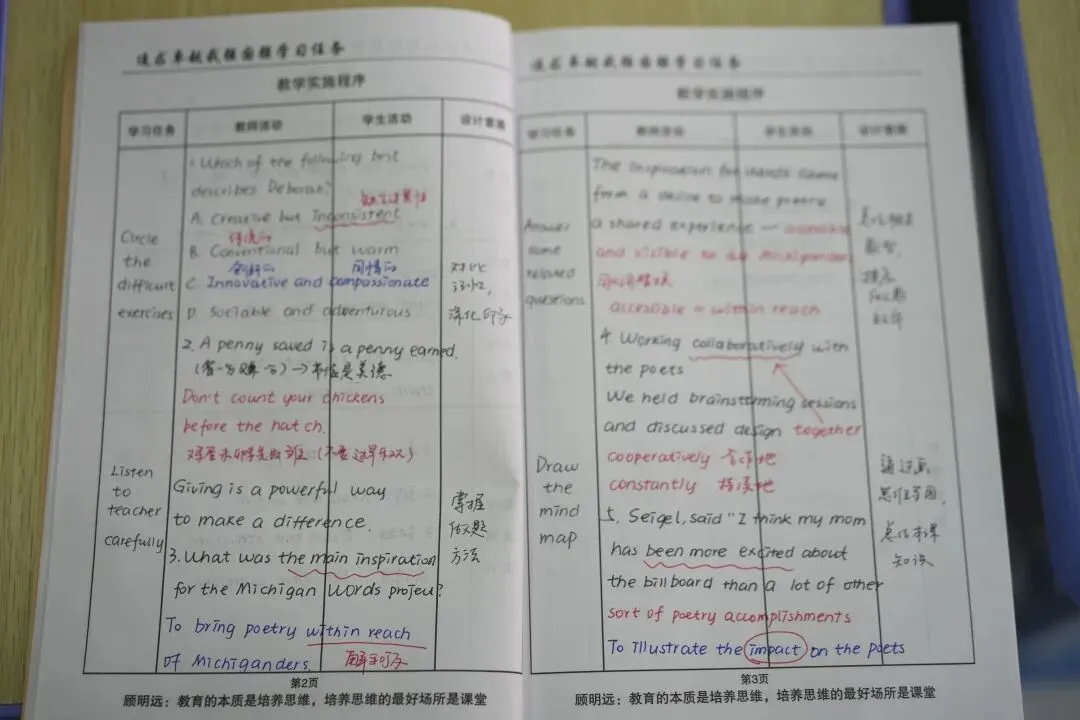 教学实施程序
学习任务 教师活动 学生活动 设计意图
1. Which of the following best
describes Deborah?
A. Creative but inconsistent
传统的
B. Conventional but warm
创新的 同情的
C. Innovative and compassionate
D. Sociable and adventurous
Circle
the
difficult
exercises
2. A penny saved is a penny earned.
Don't count your chickens
before the hatch.
Giving is a powerful way
to make a difference.
3. What was the main inspiration
for the Michigan Words project?
To bring poetry within reach
of Michiganders.
Listen
to
teacher
carefully
掌握
做题
方法
第2页
顾明远：教育的本质是培养思维，培养思维的最好场所是课堂
教学实施程序
学习任务 教师活动 学生活动 设计意图
The inspiration for
from a desire to make poetry
a shared experience — accessible
and visible to all Michiganders
accessible = within reach
Answer
some
related
questions
4. Working collaboratively with
the poets
We held brainstorming sessions
and discussed design together
cooperatively 合作地
constantly 持续地
5. Seigel, said "I think my mom
has been more excited about
the billboard than a lot of other
sort of poetry accomplishments
To illustrate the impact on the poets
Draw
the
mind
map
通过画
思维导图,
总结本课
知识
第3页
顾明远：教育的本质是培养思维，培养思维的最好场所是课堂